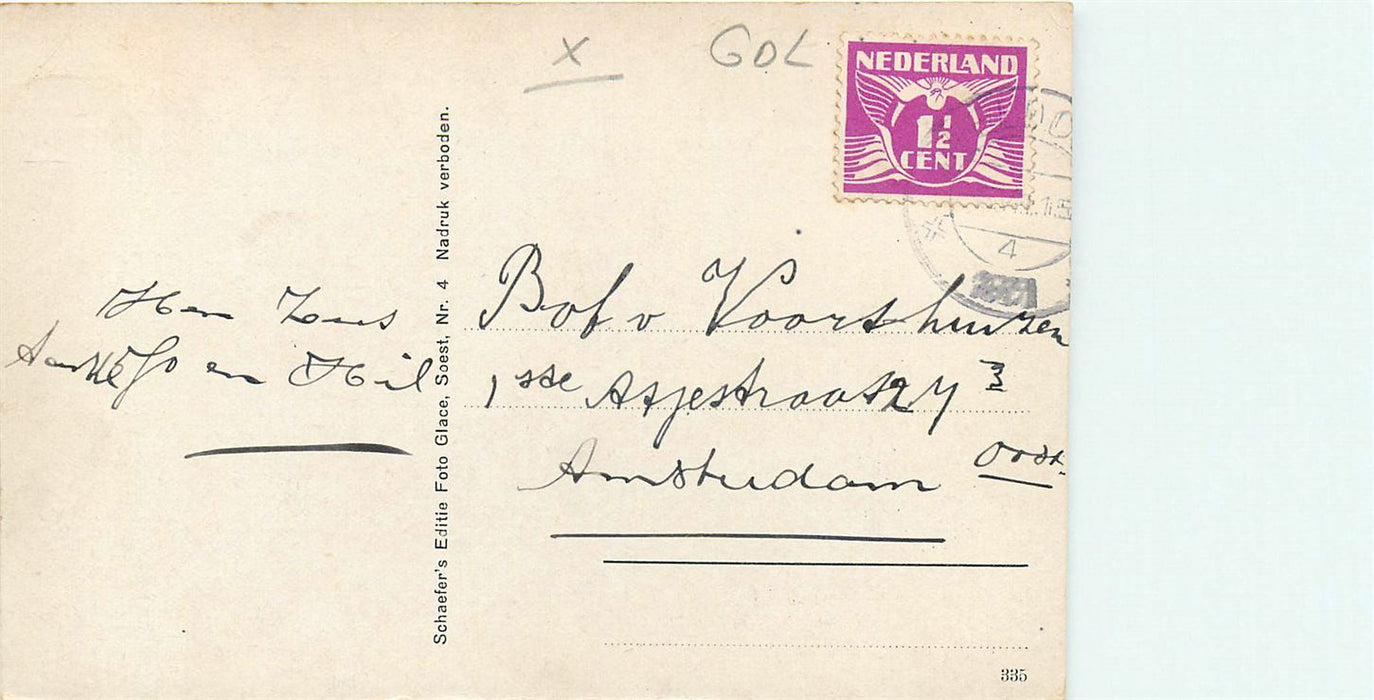 X GOL
NEDERLAND
1½
CENT
4
Schaefer's Editie Foto Glace, Soest, Nr. 4 Nadruk verboden.
en Hil
Bof v Voorthuizen
1sse Atjestraat 27 3
Amsterdam Oost.
335